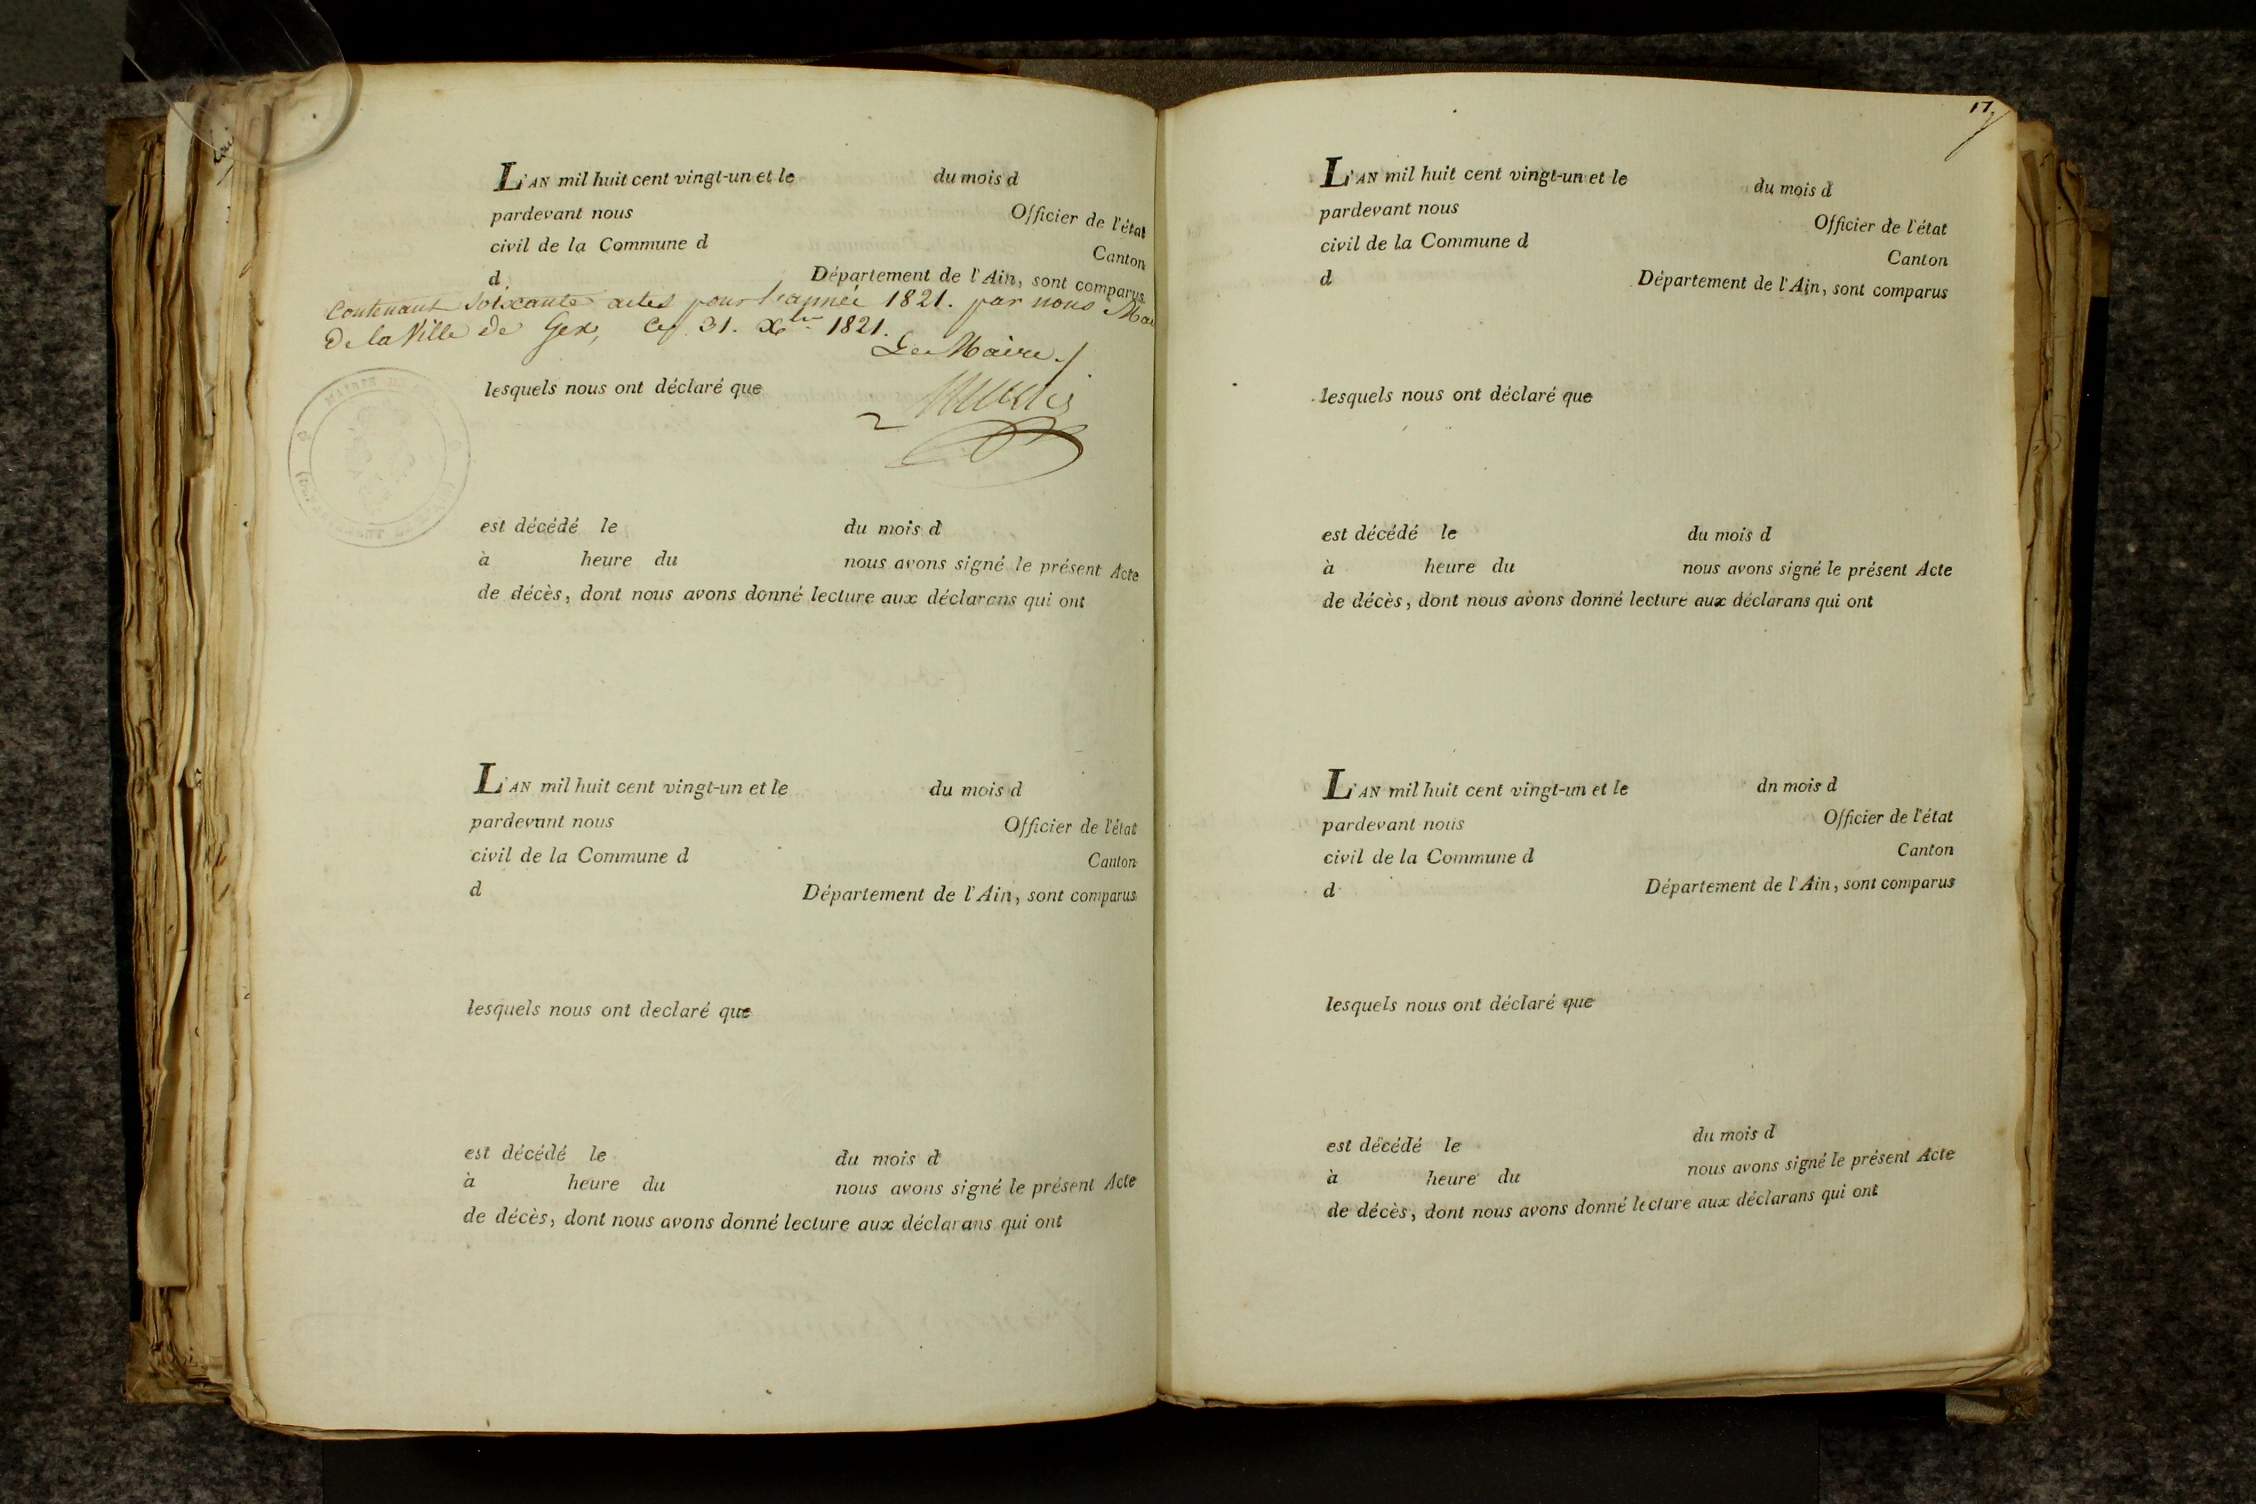 L'AN mil huit cent vingt-un et le du mois d
pardevant nous Officier de l'état
civil de la Commune d Canton
d Département de l'Ain, sont comparus
Contenant Soixante actes pour l'année 1821. par nous Mai
De la Ville de Gex, Ce 31. Xbre 1821.
Le Maire
lesquels nous ont déclaré que
MAIRIE DE
est décédé le du mois d
à heure du nous avons signé le présent Acte
de décès, dont nous avons donné lecture aux déclarans qui ont
L'AN mil huit cent vingt-un et le du mois d
pardevant nous Officier de l'état
civil de la Commune d Canton
d Département de l'Ain, sont comparus
lesquels nous ont declaré que
est décédé le du mois d
à heure du nous avons signé le présent Acte
de décès, dont nous avons donné lecture aux déclarans qui ont
17
L'AN mil huit cent vingt-un et le du mois d
pardevant nous Officier de l'état
civil de la Commune d Canton
d Département de l'Ain, sont comparus
lesquels nous ont déclaré que
est décédé le du mois d
à heure du nous avons signé le présent Acte
de décès, dont nous avons donné lecture aux déclarans qui ont
L'AN mil huit cent vingt-un et le dn mois d
pardevant nous Officier de l'état
civil de la Commune d Canton
d Département de l'Ain, sont comparus
lesquels nous ont déclaré que
est décédé le du mois d
à heure du nous avons signé le présent Acte
de décès, dont nous avons donné lecture aux déclarans qui ont